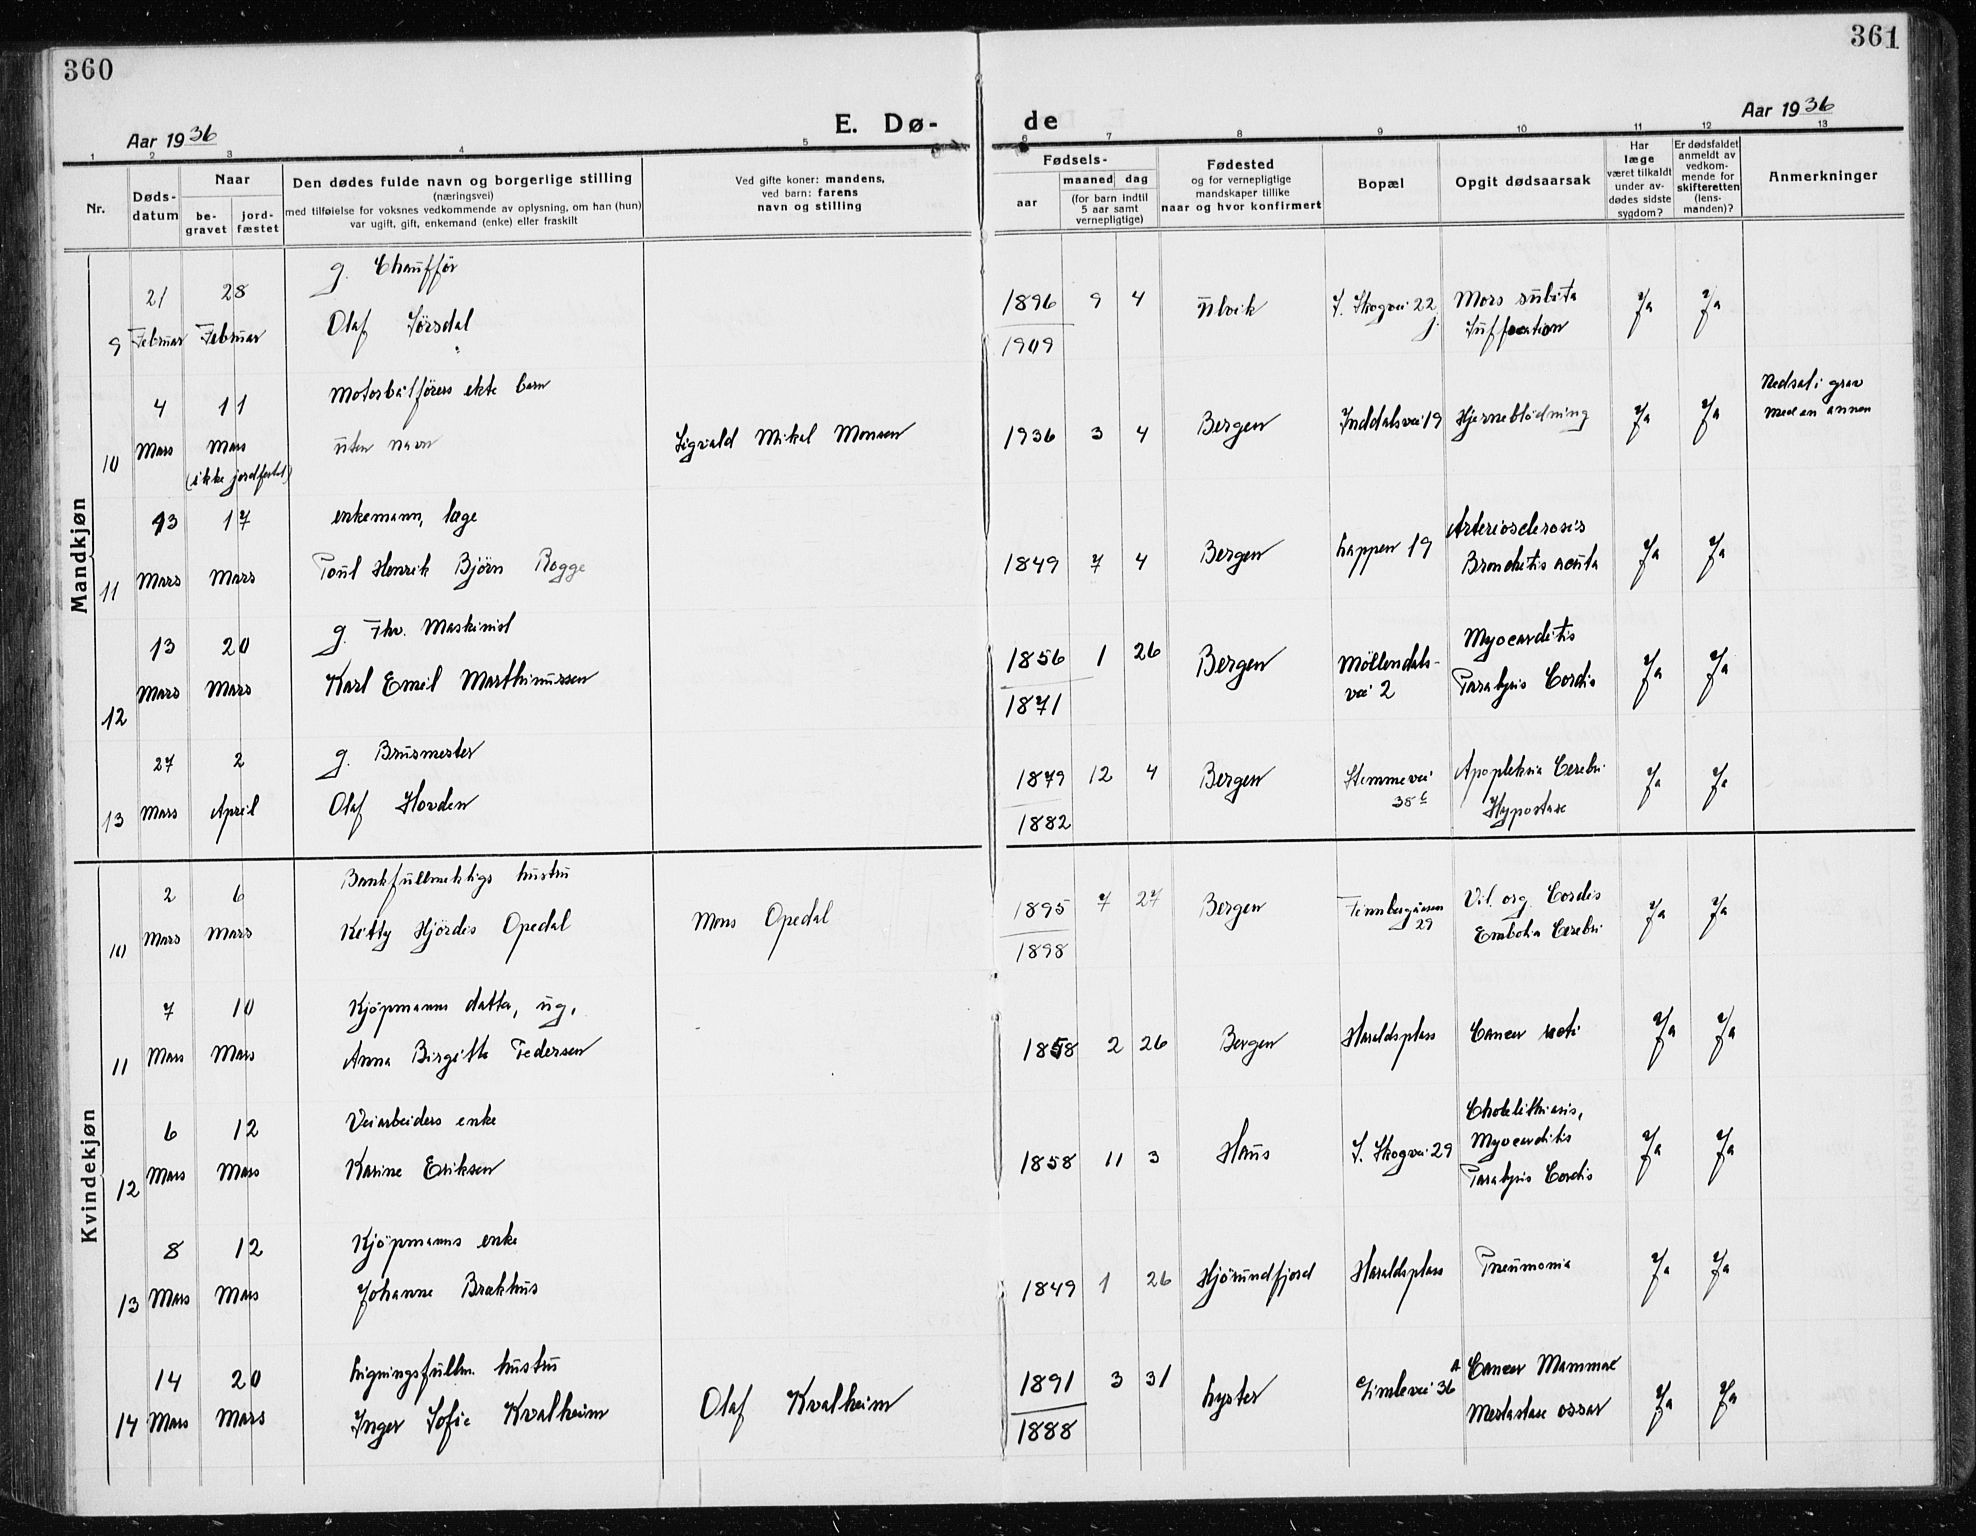 360
361
Aar 1936
E. Dø-
de
Aar 1936
1 2 3 4 5 6 7 8 9 10 11 12 13
Nr.
Døds-
datum
Naar
be-
gravet
jord-
fæstet
Den dødes fulde navn og borgerlige stilling
(næringsvei)
med tilføielse for voksnes vedkommende av oplysning, om han (hun)
var ugift, gift, enkemand (enke) eller fraskilt
Ved gifte koner: mandens,
ved barn: farens
navn og stilling
Fødsels-
aar
maaned dag
(for barn indtil
5 aar samt
vernepligtige)
Fødested
og for vernepligtige
mandskaper tillike
naar og hvor konfirmert
Bopæl
Opgit dødsaarsak
Har
læge
været tilkaldt
under av-
dødes sidste
sygdom?
Er dødsfaldet
anmeldt av
vedkom-
mende for
skifteretten
(lens-
manden)?
Anmerkninger
Mandkjøn
g. Chaufför
21 28 1896 9 4 Ulvik J. Skogvei 22 j. Mors subita Ja Ja
9 Februar Februar Olaf Sørsdal 1909 Suffocation
Motorbåtförers ekte barn
4 11 1936 3 4 Bergen Inddalsvei 19 Hjerneblödning Ja Ja Nedsat i grav
med en annen
10 Mars Mars uten navn Sigvald Mikal Monsen
(ikke jordfestet)
13 17 enkemann, læge Arteriosclerosis
11 Mars Mars Poul Henrik Björn Rogge 1849 7 4 Bergen Lappen 19 Bronchitis acuta Ja Ja
g. Fhv. Maskinist
13 20 1856 1 26 Bergen Möllendals- Myocarditis Ja Ja
12 Mars Mars Karl Emil Marthinussen 1871 vei 2 Paralysis Cordis
g. Brusmester
27 2 1879 12 4 Bergen Stemmevei Apoplekxia Cerebri Ja Ja
13 Mars April Olaf Hovden 1882 38 Hypostase
Kvindekjøn
Bankfullmektigs hustru
2 6 1895 7 27 Bergen Finnbergåsen Vit. org. Cordis Ja Ja
10 Mars Mars Ketty Hjördis Opedal Mons Opedal 1898 29 Embolia Cerebri
7 10 Kjöpmanns datter, ug.
11 Mars Mars Anna Birgitte Pedersen 1858 2 26 Bergen Haraldsplass Cancer recti Ja Ja
6 12 Veiarbeiders enke Cholelithiasis,
Myocarditis
12 Mars Mars Karine Eriksen 1858 11 3 Haus J. Skogvei 29 Paralysis Cordis Ja Ja
8 12 Kjöpmanns enke
13 Mars Mars Johanne Brakhus 1849 1 26 Hjörundfjord Haraldsplass Pneumonia Ja Ja
14 20 Ligningsfullm. hustru 1891 3 31 Lyster Gimlevei 36 A Cancer Mammae Ja Ja
14 Mars Mars Inger Sofie Kvalheim Olaf Kvalheim 1888 Mestastase ossar